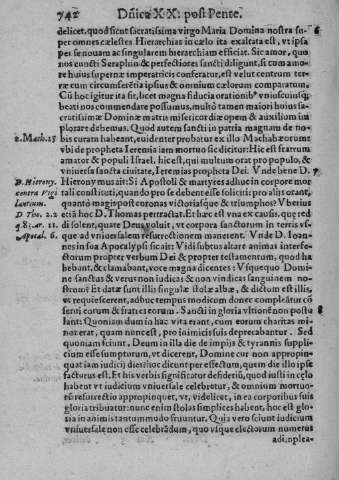 742 Dñica XX. post Pente.
delicet. quod sicut sacratissima virgo Maria Domina nostra su- 6
per omnes cælestes Hierarchias in cælo ita exaltata est, vt ipsa
per se nouam ac singularem hierarchiam efficiat. Sic amor, quo
nos cuncti Seraphin & perfectiores sancti diligunt, si cum amo
re huius supernæ imperatricis conferatur, est velut centrum ter-
ræ cum circumferētia ipsius & omnium cælorum comparatum.
Cū hoc igitur ita sit, licet magna fiducia orationib⁹ vniuscuiusq;
beati nos commendare possumus, multò tamen maiori huius sa-
cratissimæ Dominæ matris misericordiæ opem & auxilium im
plorare debemus. Quod autem sancti in patria magnam de no-
2. Mach. 15 bis curam habeant, euidenter probatur ex illo Machabæorum 7
vbi de propheta Ieremia iam mortuo sic dicitur: Hic est fratrum
amator & populi Israel, hic est, qui multum orat pro populo, &
vniuersa sancta ciuitate, Ieremias propheta Dei. Vnde bene D.
D. Hierony. Hieronymus ait: Si Apostoli & martyres adhuc in corpore mor
contra Vigi tali constituti, quando pro se debent esse solliciti: pro alijs orant,
lantium. quantò magis post coronas victorias�que & triumphos? Vberius
D Tho. 2. 2 etiā hoc D. Thomas pertractat. Et hæc est vna ex causis, quę red
q. 83. ar. 11. di solent, quate Deus voluit, vt corpora sanctorum in terris vsq;
Apocal. 6. que ad vniuersalem resurrectionem manerent. Vnde D. Ioan-
nes in sua Apocalypsi sic ait: Vidi subtus altare animas interfe-
ctorum propter verbum Dei & propter testamentum, quod ha
bebant, & clamabant, voce magna dicentes: Vsquequo Domi-
ne sanctus & verus non iudicas & non vindicas sanguinem no-
strum? Et datæ sunt illi singulæ stolæ albæ, & dictum est illis,
vt requiescerent, adhuc tempus modicum donec compleātur cō
serui eorum & fratres eorum. Sancti in gloria vltionē non postu 8
lant: Quoniam dum in hac vita erant, cum eorum charitas mi-
nor erat, quam nunc est, pro inimicis suis deprecabantur. Sed
quoniam sciunt, Deum in illa die de impijs & tyrannis suppli-
cium esse sumpturum, vt dicerent, Domine cur non appropin-
quat iam iudicij dies: hoc est voluisse dicere, quem die illo ipse
facturus est. Et his verbis significatur desiderium, quod iusti in cęlo
habent vt iudicium vniuersale celebretur, & omnium mortuo-
rū resurrectio appropinquet, vt, videlicet, in ea corporibus suis
gloria tribuatur: nunc enim stolas simplices habent, hoc est glo-
sia in animis tantummodo fruuntur. Quia vero sciunt iudicium
vniuersale non esse celebrādum, quo vsque electorum numerus
adimplea-